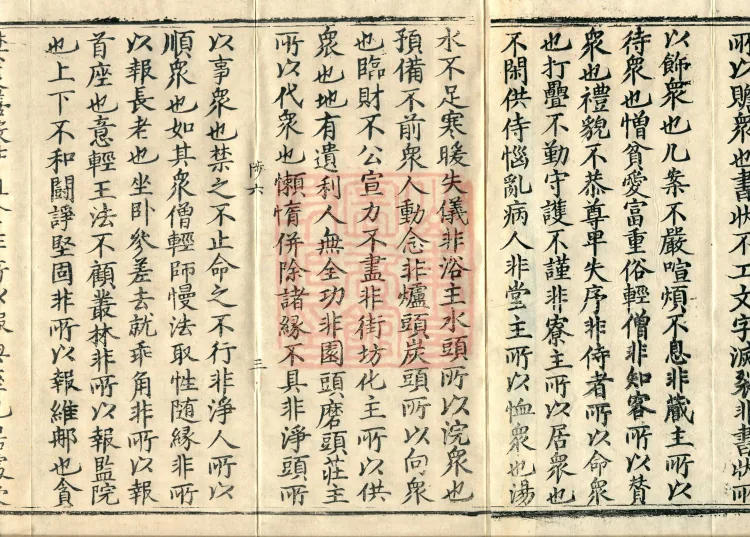 所以贍衆也書狀不工文字滅裂非書狀所
以飾衆也几案不嚴喧煩不息非蔵主所以
待衆也憎貧愛富重俗輕僧非知客所以賛
衆也禮貌不恭尊卑失序非侍者所以命衆
也打疊不勤守護不謹非寮主所以居衆也
不閑供侍惱亂病人非堂主所以恤衆也湯
水不足寒暖失儀非浴主水頭所以浣衆也
預備不前衆人動念非爐頭炭頭所以向衆
也臨財不公宣力不盡非街坊化主所以供
衆也地有遺利人無全功非園頭磨頭莊主
所以代衆也懶惰併除諸緣不具非淨頭所
陟六 三
以事衆也禁之不止命之不行非淨人所以
順衆也如其衆僧輕師慢法取性随緣非所
以報長老也坐卧參差去就乖角非所以報
首座也意輕王法不顧叢林非所以報監院
也上下不和闘諍堅固非所以報維那也貪